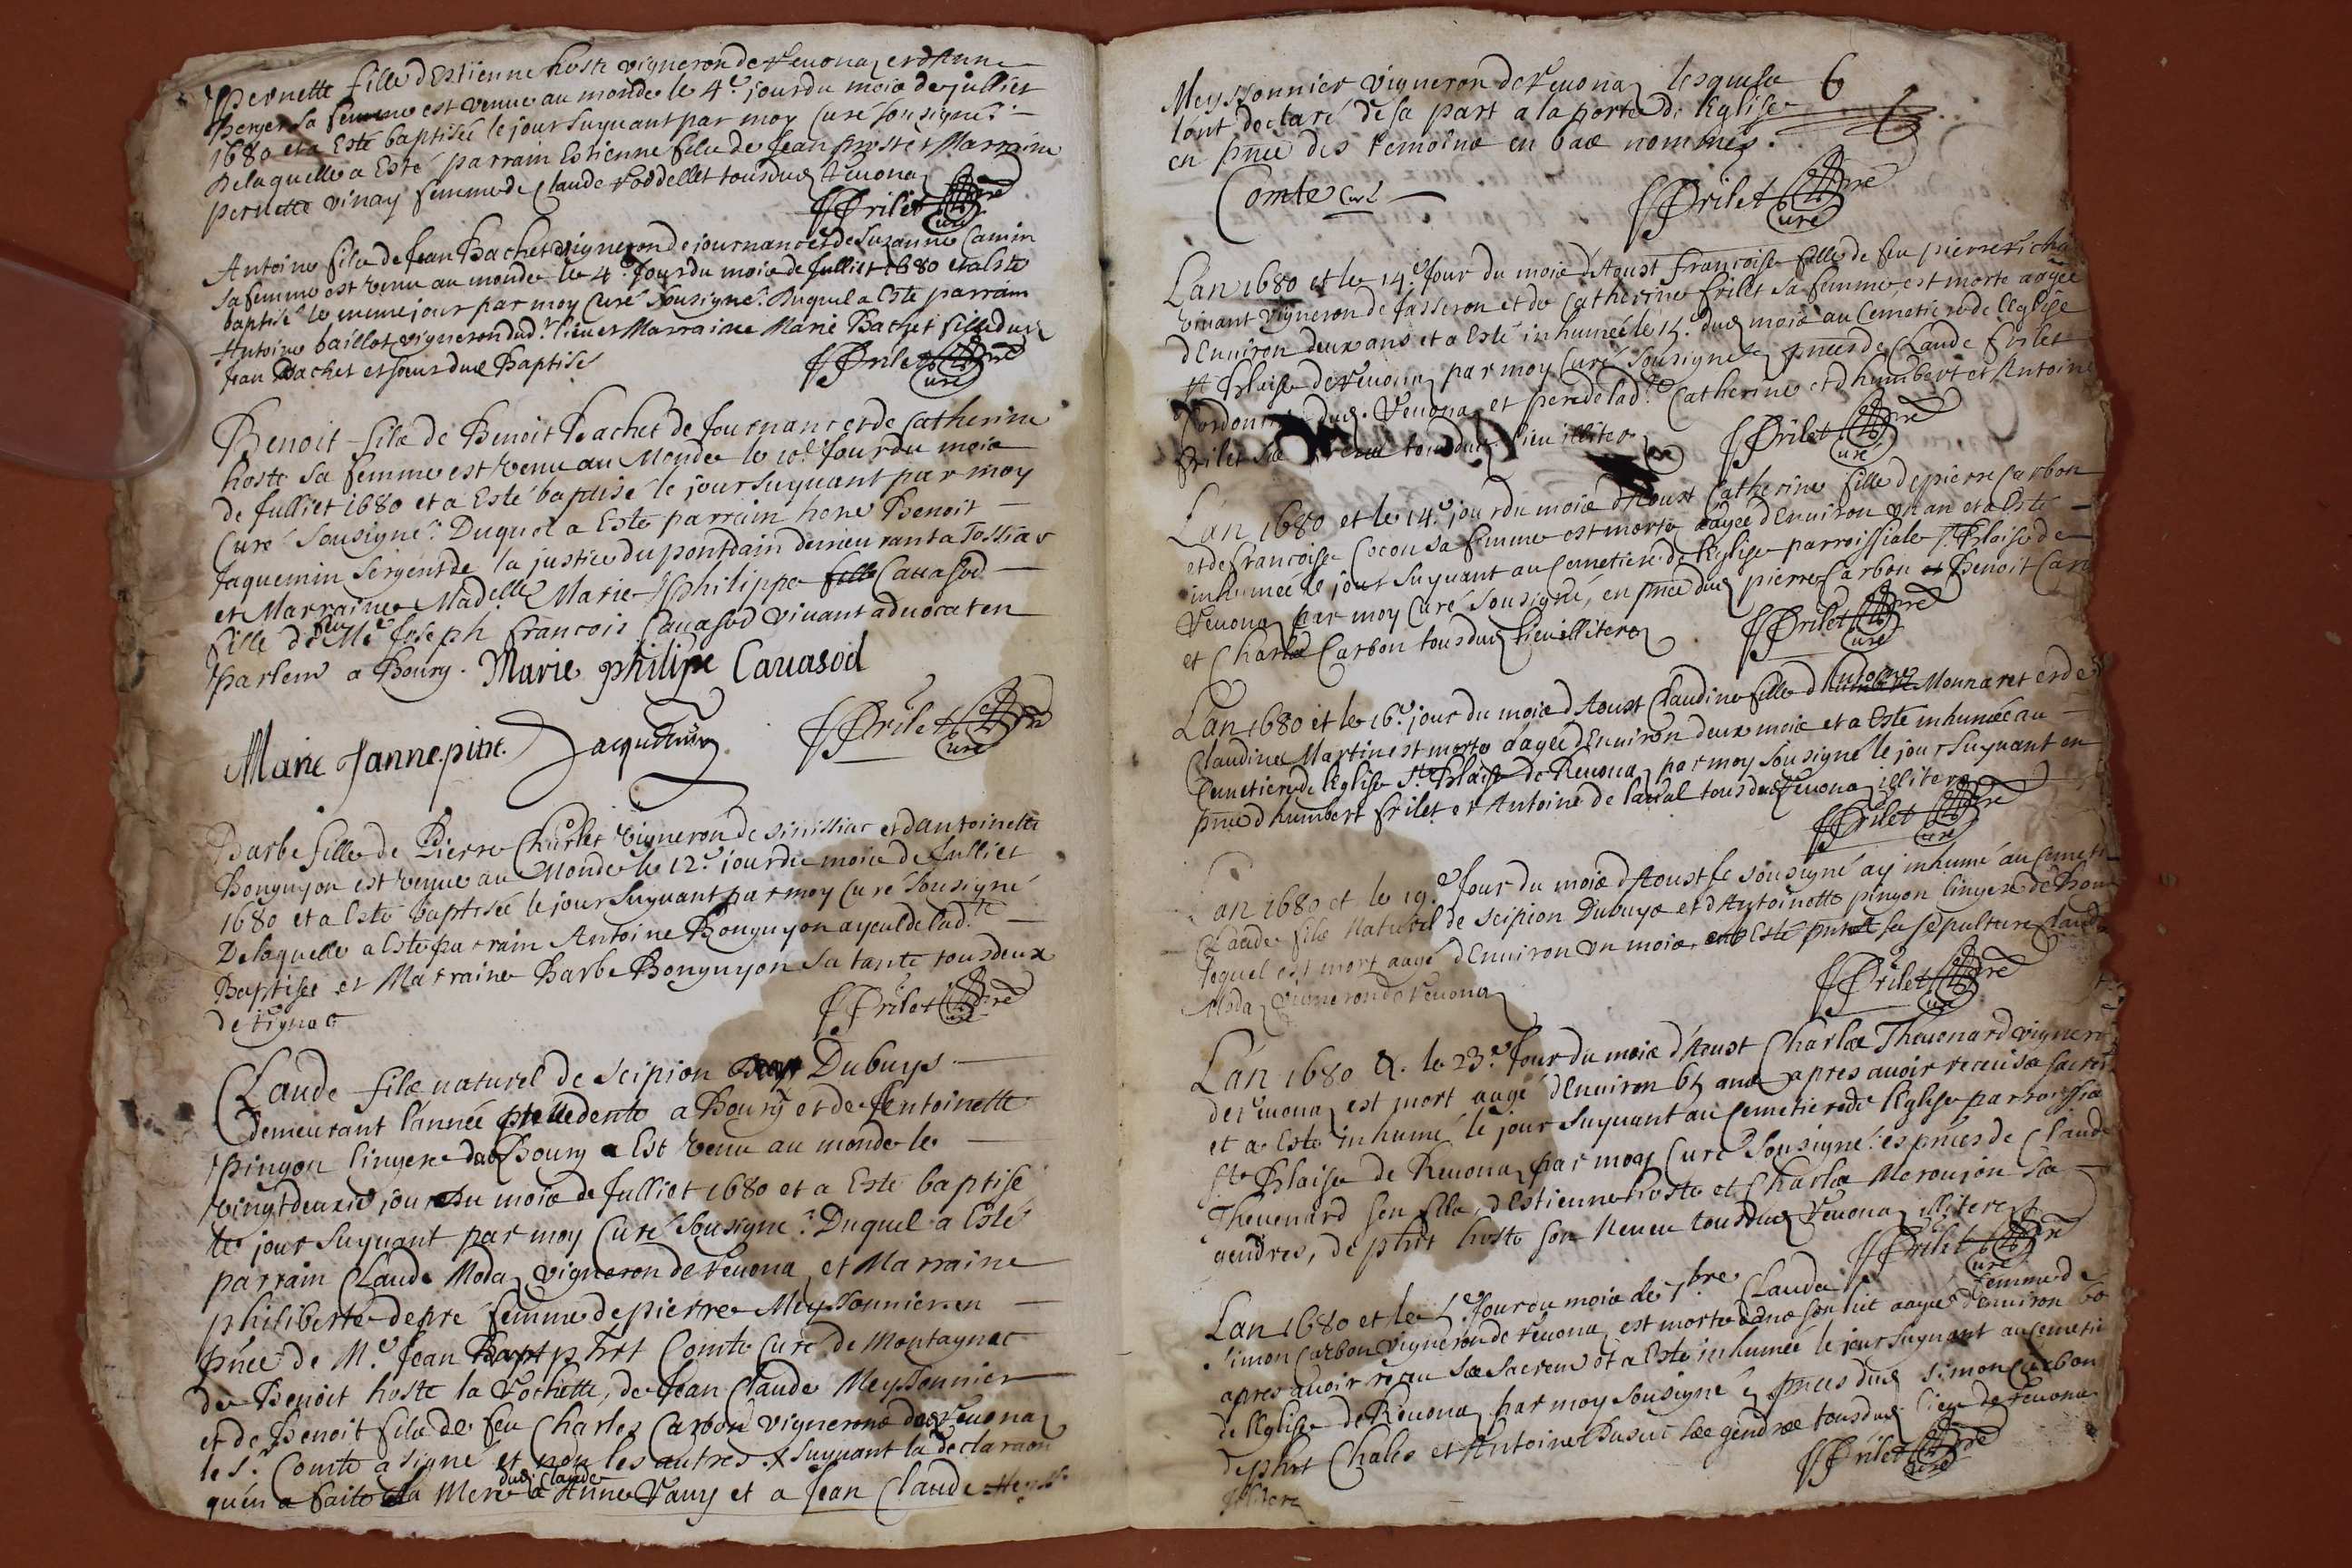 Pernette fille d'Estienne hoste vigneron de Reuonaz et d'Anne
Berger sa femme est venue au monde le 4.e jour du mois de julliet
1680 et a Esté baptisée le jour suyuant par moy Curé sousigné.
De laquelle a Esté parrain Estienne filz de Jean et Marraine
pernette vinay femme de Claude tousduz Reuonaz
Frilet pre Curé
Antoine filz de Jean Bachet vigneron de journanc et de Suzanne Camin
sa femme est venu au monde le 4.e jour du mois de Julliet 1680 et a Este
baptisé le meme jour par moy Curé Sousigné. Duquel a Este parrain
Antoine baillot vigneron dud.t lieu et Marraine Marie Bachet fille dud.
Jean Bachet et soeur dud Baptisé
Frilet pre Curé
Benoit filz de Benoit Bachet de Journanc et de Catherine
hoste sa femme est venu au Monde le 10.e Jour du mois
de Julliet 1680 et a Esté baptisé le jour suyuant par moy
Curé Sousigné. Duquel a Esté parrain hone Benoit
Jaquemin Sergent de la justice du pontdain demeurant a Tossiat
et Marraine Madelle Marie Philippe fille Cauasod
fille de feu Me Joseph francois Cauasod viuant aduocat en
parlem a Bourg. Marie philipe Cauasod
Marie Janne pitre. Jaquemin Frilet pre Curé
Barbe fille de Pierre Charlet vigneron de sinissiac et d'antoinette
Bonguyon est venue au Monde le 12.e jour du mois de Julliet
1680 et a Este baptisée le jour suyuant par moy Curé Sousigné
De laquelle a Este parrain Antoine Bonguyon ayeul de lad.te
Baptisée et Marraine Barbe Bonguyon sa tante tous deux
de
Frilet pre Curé
Claude filz naturel de Scipion Dubuys
demeurant l'année precedente a Bourg et de Antoinette
pingon lingere Bourg a Est venu au monde le
vingtdeuxie jour du mois de Julliet 1680 et a Este baptisé
le jour suyuant par moy Curé Sousigné. Duquel a Esté
parrain Claude Modaz vigneron de Reuonaz et Marraine
philiberte depré femme de pierre Meyssonnier en
pnce de M.e Jean phrt Comte Curé de Montagnac
de Benoit hoste la Rochette, de Jean Claude Meyssonnier
et de Benoit filz de feu Charles Carbon vignerons de Reuonaz
le S.r Comte a signé et non les autres. X suyuant la declaraon
qu'en a faite la Mere dud. Claude a Anne Vauy et a Jean Claude
Meyssonnier vigneron de Reuonaz lesquels 6
l'ont declaré de sa part a la porte de l'Eglise
en pnce des temoins en bas nommés.
Comte Curé Frilet pre Curé
L'an 1680 et le 14.e Jour du mois d'Aoust francoise fille de feu pierre
viuant vigneron de Jasseron et de Catherine frilet sa femme, est morte aagée
d'Enuiron deux ans et a Esté inhumée le 15.e dud mois au Cemetiere de l'Eglise
st blaise de Reuonaz par moy Curé Sousigné ez pnces de Claude frilet
dud. Reuonaz et pere de lad.te Catherine et d'humbert et Antoine
frilet tousduz lieu illiterez
Frilet pre Curé
L'an 1680 et le 14.e jour du mois d'Aoust Catherine fille de pierre Carbon
et de francoise Cocon sa femme est morte aagée d'Enuiron vn an et a Esté
inhumée le jour suyuant au Cemetiere de l'Eglise parroissiale st Blaise de
Reuonaz par moy Curé Sousigné, en pnce dud pierre Carbon et Benoit Car
et Charles Carbon tousduz lieu illiterez
Frilet pre Curé
L'an 1680 et le 16.e jour du mois d'Aoust Claudine fille d'Antoine Monnaret et de
Claudine Martin est morte aagée d'Enuiron deux mois et a Este inhumée au
Cemetiere de l'Eglise St Blaise de Reuonaz par moy sousigné le jour suyuant en
pnce d'humbert frilet et Antoine de laval tousduz Reuonaz illiterez
Frilet pre Curé
L'an 1680 et le 19.e Jour du mois d'Aoust Je sousigné ay inhumé au Cemeti
Claude filz Naturel de scipion Dubuys et d'Antoinette pingon lingere de Bour
lequel est mort aagé d'Enuiron vn mois, Este sa sepulture Claude
Modaz vigneron de Reuonaz
Frilet pre Curé
L'an 1680 & le 23.e Jour du mois d'Aoust Charles Theuenard vigner
de Reuonaz est mort aagé d'Enuiron 65 ans apres auoir receu ses sacrem
et a Este inhumé le jour suyuant au Cemetiere de l'Eglise parroissia
St Blaise de Reuonaz par moy Curé Sousigné es pnces de Claude
Theuenard son filz, d'Estienne hoste et Charles Meroujon ses
gendres, de phrt hoste son Neueu tousduz Reuonaz illiterez
Frilet pre Curé
L'an 1680 et le 5.e Jour du mois de 7.bre Claudaz femme de
simon Carbon vigneron de Reuonaz est morte dans son lit aagée d'enuiron 60
apres auoir receu ses sacrem et a Este inhumée le jour suyuant au Cemetie
de l'Eglise de Reuonaz par moy sousigné ez pnces dud simon Carbon
de phrt Chales et Antoine ses gendres tousduz lieu de Reuonaz
illiterez
Frilet pre Curé